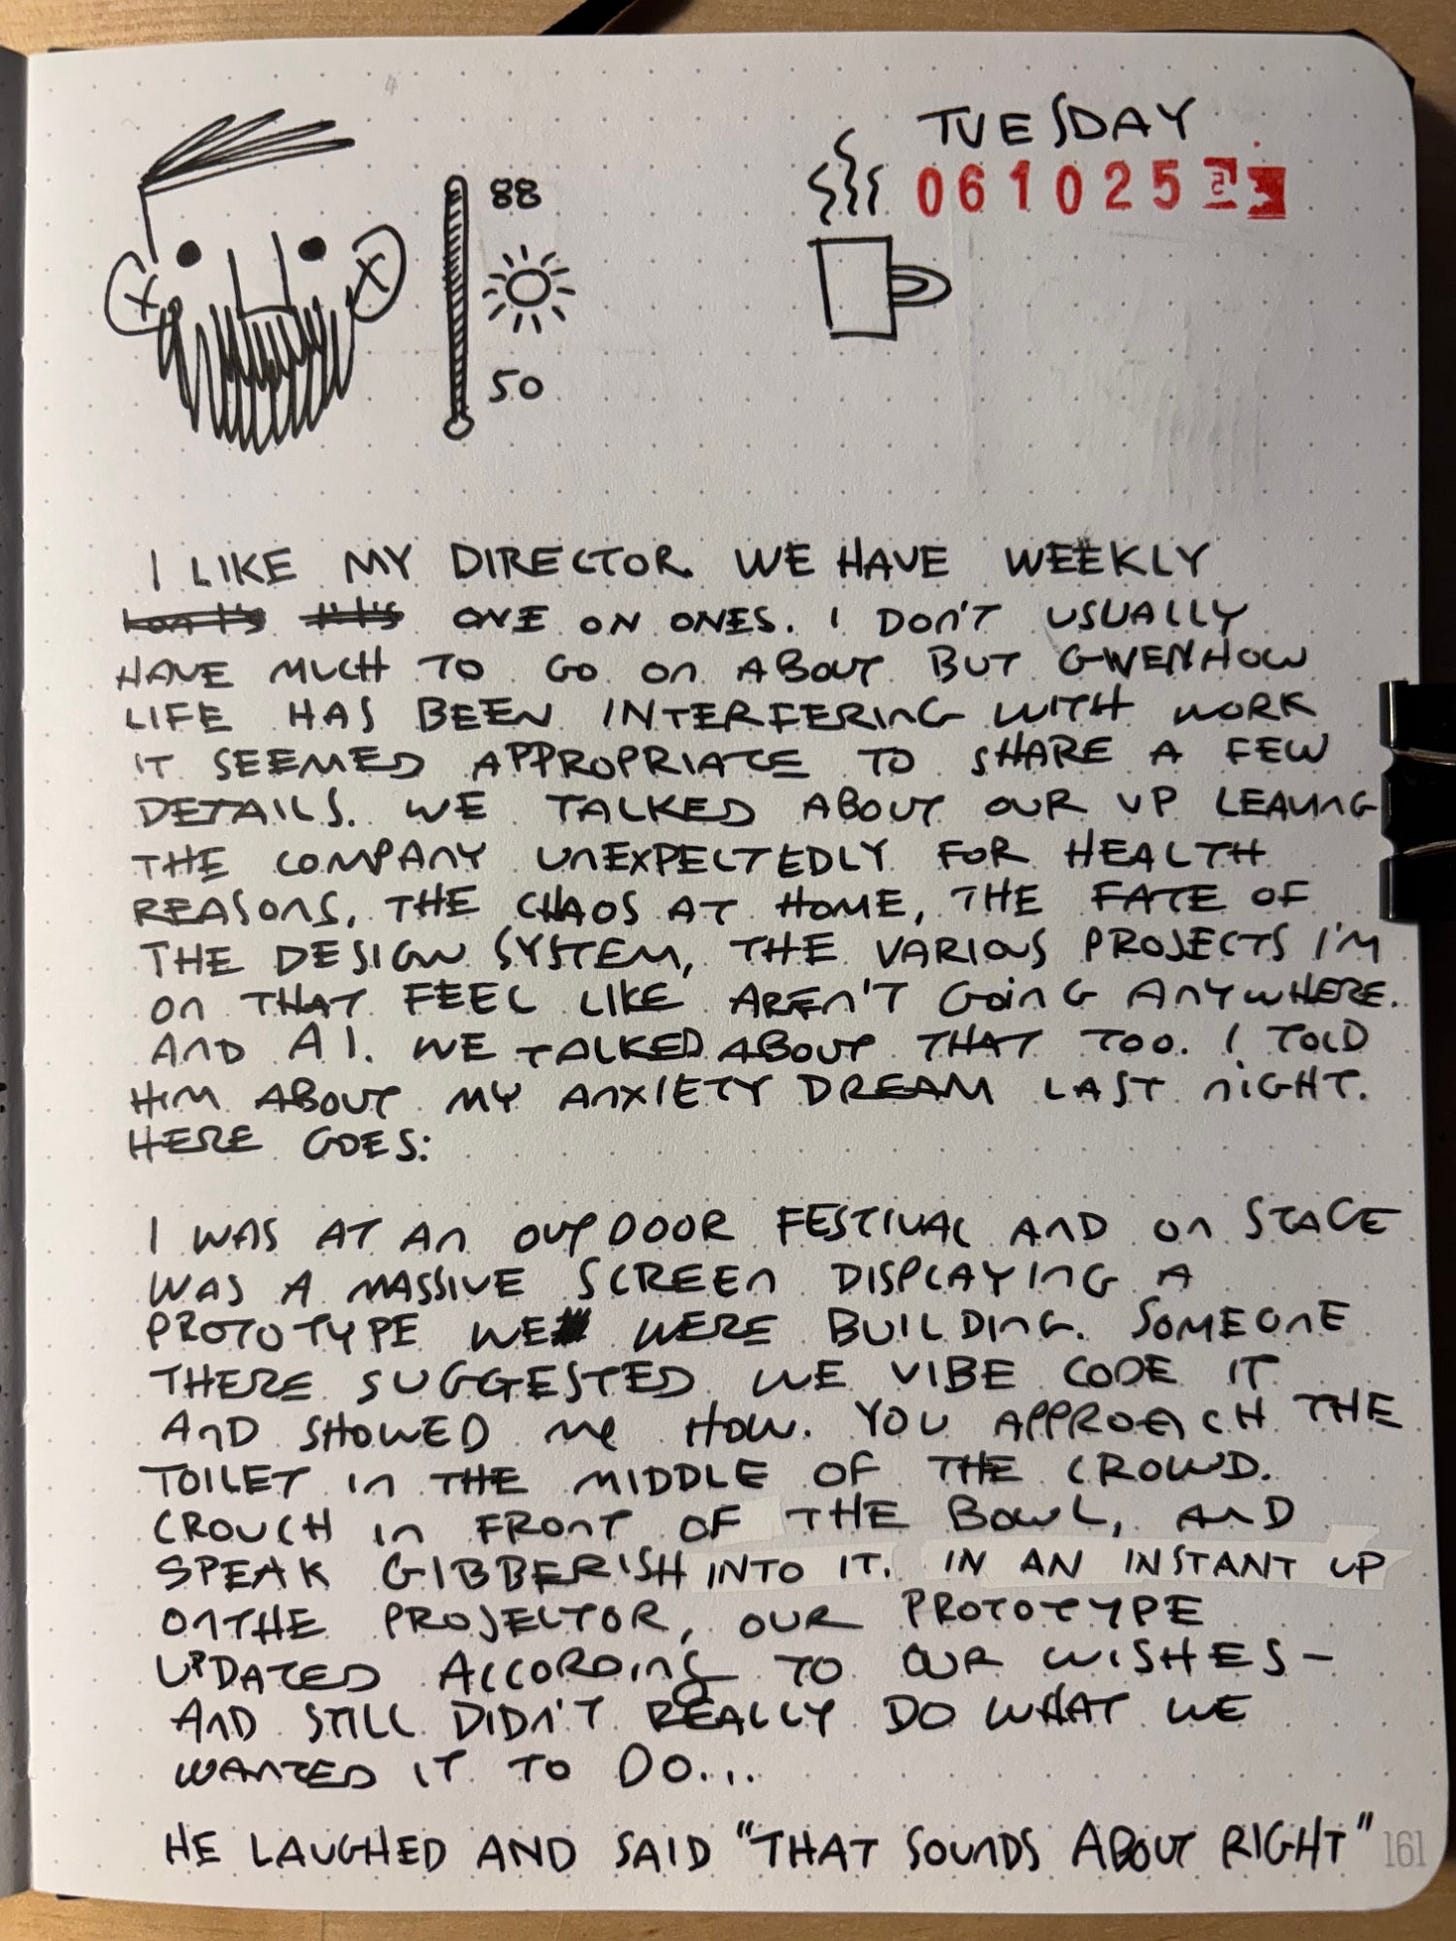 TUESDAY
061025
88
50
I LIKE MY DIRECTOR. WE HAVE WEEKLY
1 on 1's 1:1's ONE ON ONES. I DON'T USUALLY
HAVE MUCH TO GO ON ABOUT BUT GWENHOW
LIFE HAS BEEN INTERFERING WITH WORK
IT SEEMED APPROPRIATE TO SHARE A FEW
DETAILS. WE TALKED ABOUT OUR VP LEAVING
THE COMPANY UNEXPECTEDLY FOR HEALTH
REASONS, THE CHAOS AT HOME, THE FATE OF
THE DESIGN SYSTEM, THE VARIOUS PROJECTS I'M
ON THAT FEEL LIKE AREN'T GOING ANYWHERE.
AND AI. WE TALKED ABOUT THAT TOO. I TOLD
HIM ABOUT MY ANXIETY DREAM LAST NIGHT.
HERE GOES:
I WAS AT AN OUTDOOR FESTIVAL AND ON STAGE
WAS A MASSIVE SCREEN DISPLAYING A
PROTOTYPE WE WERE BUILDING. SOMEONE
THERE SUGGESTED WE VIBE CODE IT
AND SHOWED ME HOW. YOU APPROACH THE
TOILET IN THE MIDDLE OF THE CROWD.
CROUCH IN FRONT OF THE BOWL, AND
SPEAK GIBBERISH INTO IT. IN AN INSTANT UP
ON THE PROJECTOR, OUR PROTOTYPE
UPDATED ACCORDING TO OUR WISHES-
AND STILL DIDN'T REALLY DO WHAT WE
WANTED IT TO DO...
HE LAUGHED AND SAID "THAT SOUNDS ABOUT RIGHT"
161